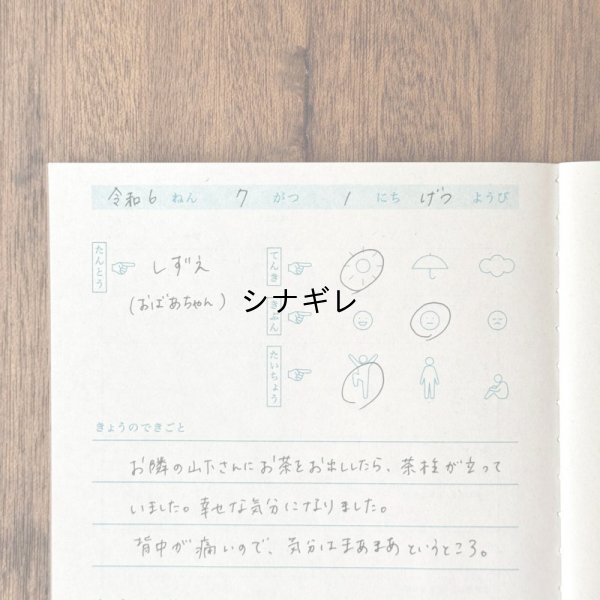 令和6 ねん 7 がつ 1 にち げつ ようび
たんとう しずえ
(おばあちゃん)
てんき
シナギレ
きぶん
たいちょう
きょうのできごと
お隣の山下さんにお茶をお出ししたら、茶柱が立って
いました。幸せな気分になりました。
背中が痛いので、気分はまあまあというところ。